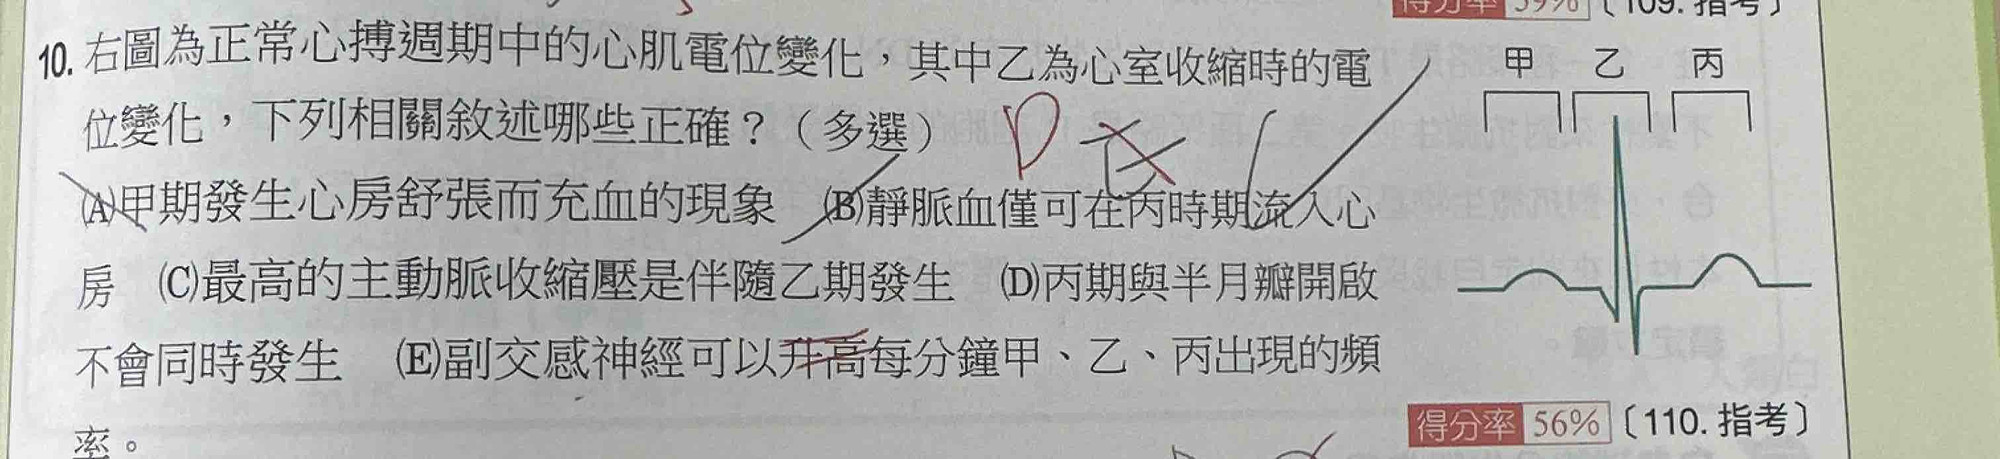 得分率 59% 〔109. 指考〕
10. 右圖為正常心搏週期中的心肌電位變化，其中乙為心室收縮時的電
甲 乙 丙
位變化，下列相關敘述哪些正確？（多選）
(A)甲期發生心房舒張而充血的現象 (B)靜脈血僅可在丙時期流入心
房 (C)最高的主動脈收縮壓是伴隨乙期發生 (D)丙期與半月瓣開啟
不會同時發生 (E)副交感神經可以升高每分鐘甲、乙、丙出現的頻
率。
得分率 56% 〔110. 指考〕